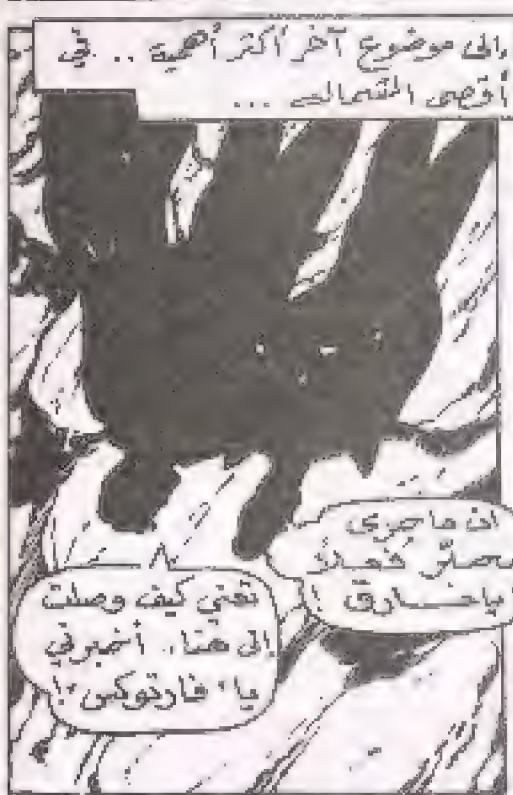 والى موضوع آخر أكثر أهمية .. في
أقصى الشمال ...
ان ما جرى
محيّر فعلاً
يا خارق !
تعني كيف وصلت
إلى هنا.. أخبرني
يا "فارتوكس" !